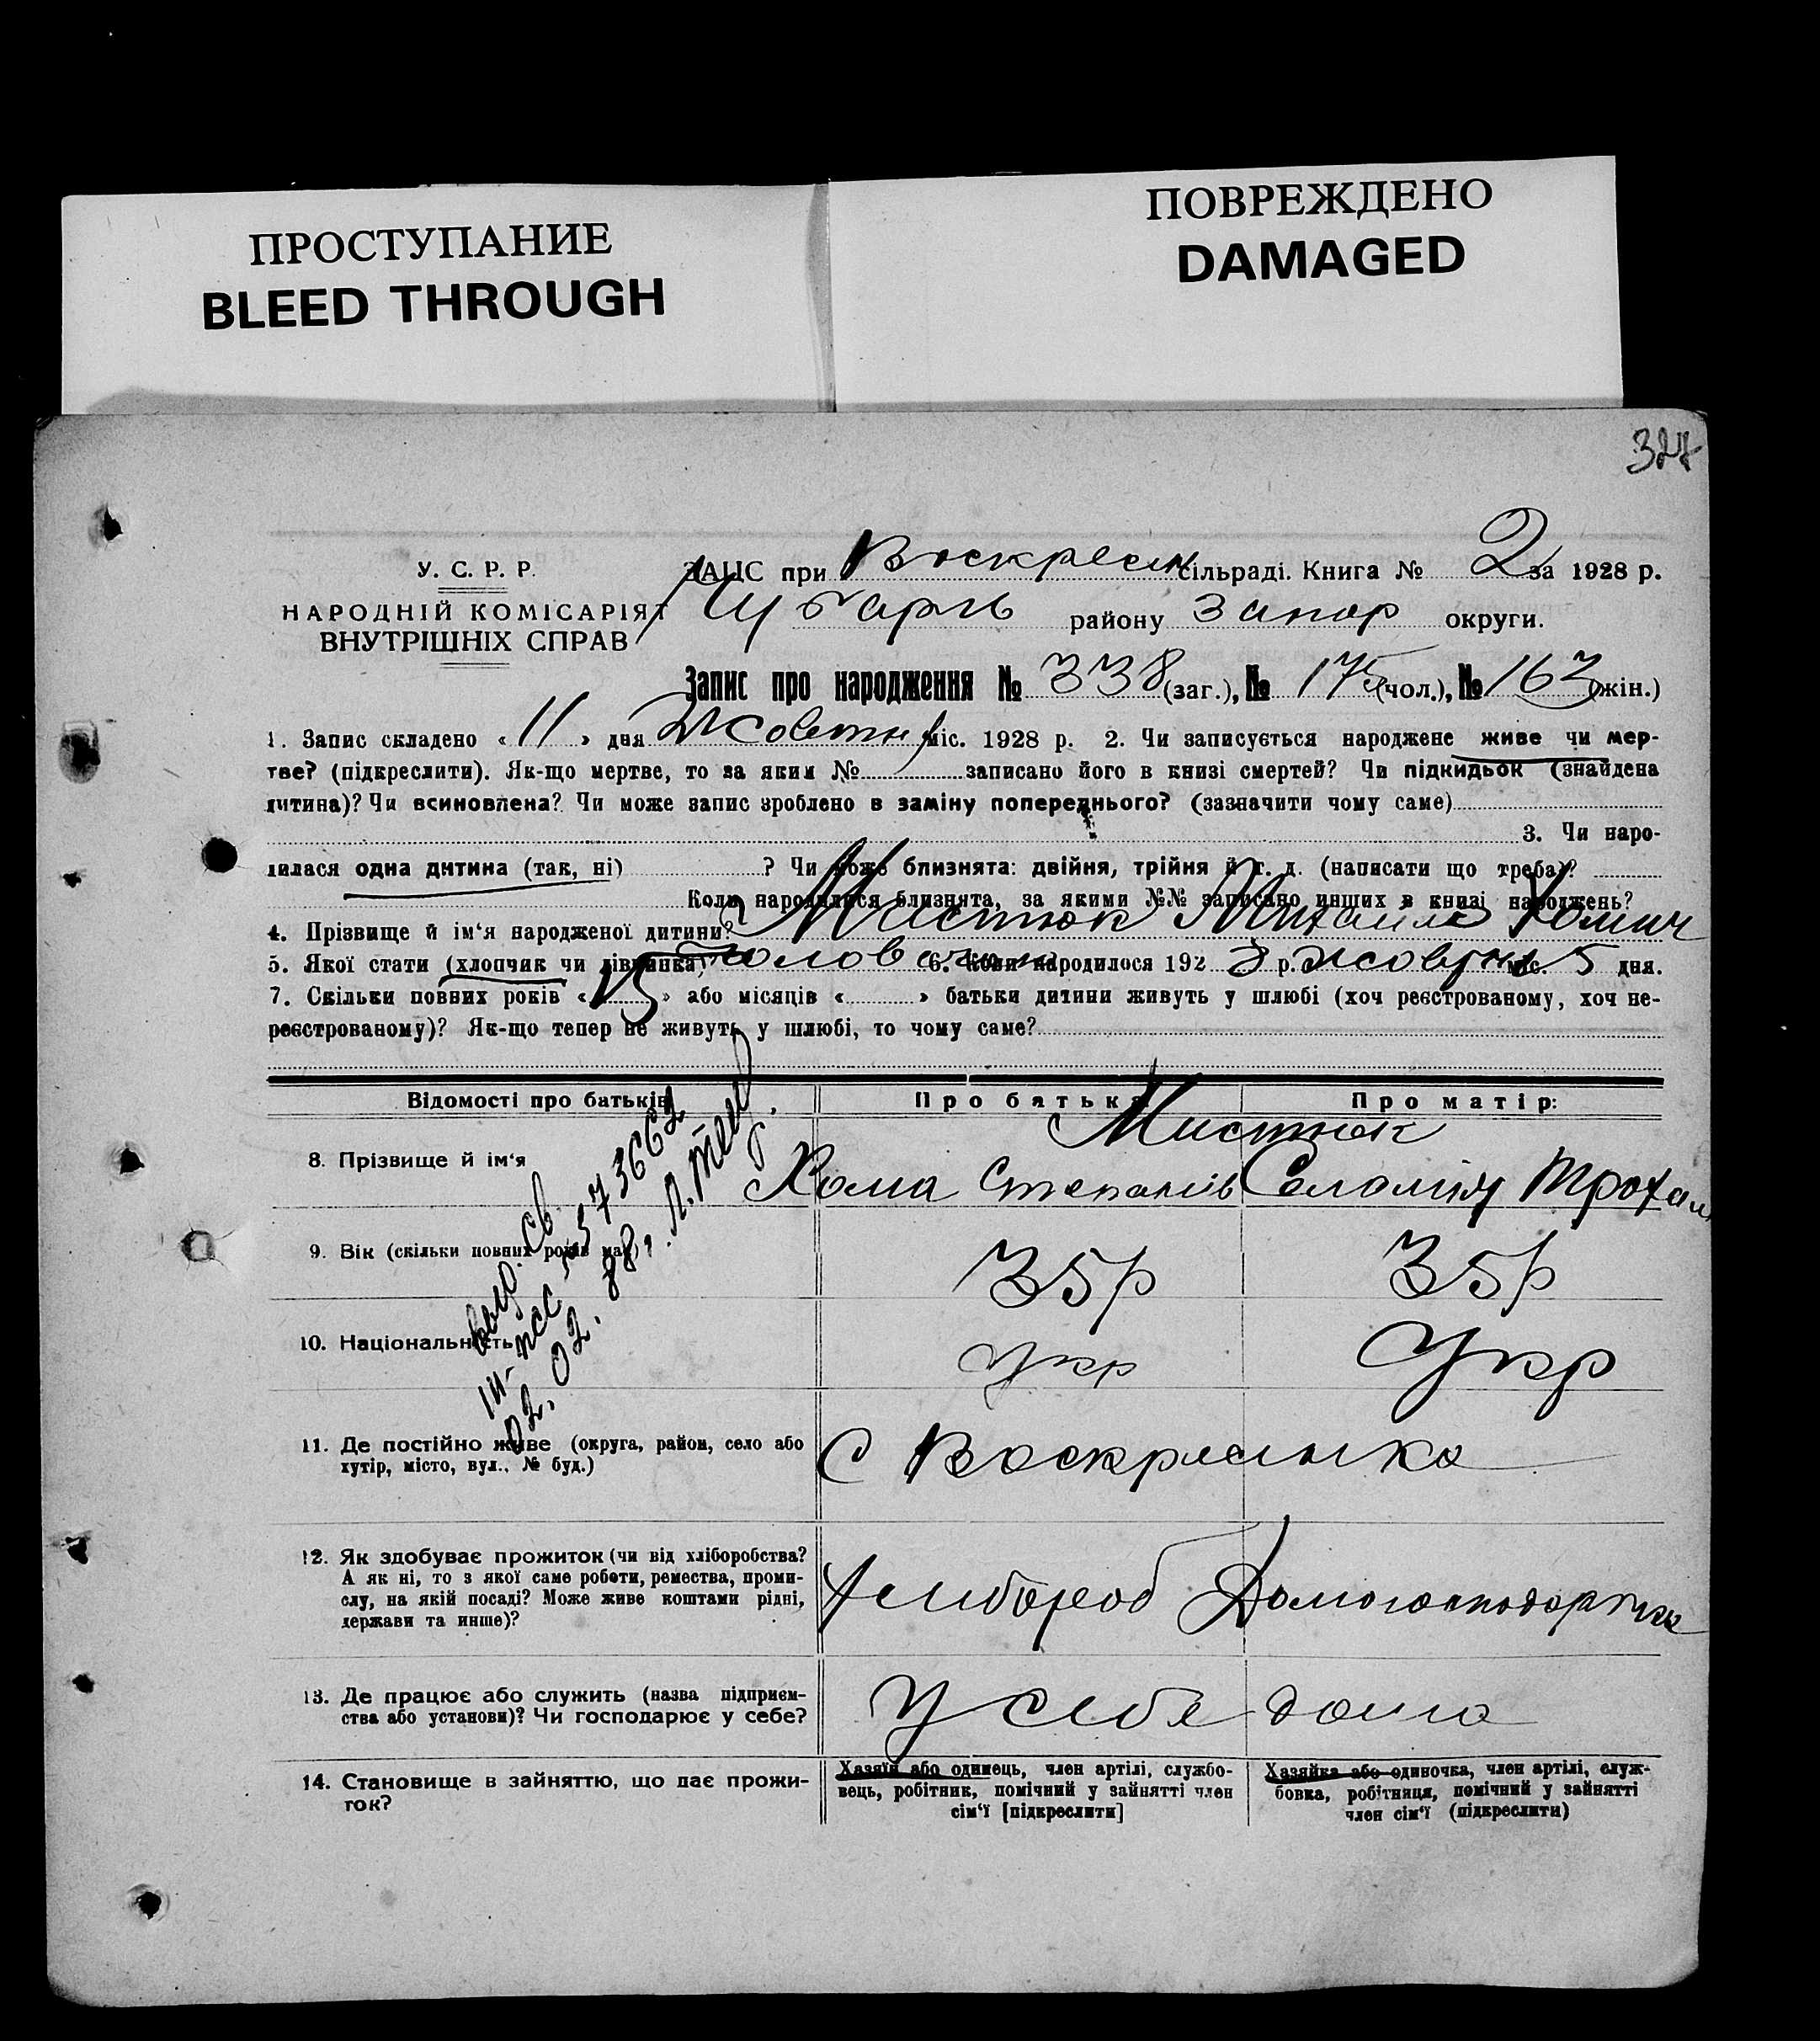 ПРОСТУПАНИЕ
BLEED THROUGH
ПОВРЕЖДЕНО
DAMAGED
327
У. С. Р. Р.
НАРОДНІЙ КОМІСАРІЯТ
ВНУТРІШНІХ СПРАВ
ЗАЦС при Воскресен сільраді. Книга № 2 за 1928 р.
Чубарів району Запор округи.
Запис про народження № 338 (заг.), № 175 (чол.), № 163 (жін.)
1. Запис складено « 11 » дня Жовтня міс. 1928 р. 2. Чи записується народжене живе чи мер-
тве? (підкреслити). Як-що мертве, то за яким № записано його в книзі смертей? Чи підкидьок (знайдена
дитина)? Чи всиновлена? Чи може запис зроблено в заміну попереднього? (зазначити чому саме)
3. Чи наро-
дилася одна дитина (так, ні) ? Чи може близнята: двійня, трійня й т. д. (написати що треба)?
Коли народилися близнята, за якими №№ записано инших в книзі народжень?
4. Прізвище й ім‘я народженої дитини? Мистюк Михаил Хомич
5. Якої стати (хлопчик чи дівчинка) 6. Коли народилося 192 8 р. жовтня міс. 5 дня.
7. Скільки повних років « 15 » або місяців « » батьки дитини живуть у шлюбі (хоч реєстрованому, хоч не-
реєстрованому)? Як-що тепер не живуть у шлюбі, то чому саме?
Відомості про батьків
Про батька
Про матір:
8. Прізвище й ім‘я
Мистюк
Хома Степанів
Соломія Трохам
выд. св.
III-ЖС № 573662
02. 02. 88г.
9. Вік (скільки повних років має)
35 р
35 р
10. Національність
Укр
Укр
11. Де постійно живе (округа, район, село або
хутір, місто, вул., № буд.)
С Воскресенка
12. Як здобуває прожиток (чи від хліборобства?
А як ні, то з якої саме роботи, ремества, проми-
слу, на якій посаді? Може живе коштами рідні,
держави та инше)?
Хлибороб
Домогосподарка
13. Де працює або служить (назва підприєм-
ства або установи)? Чи господарює у себе?
У себе дома
14. Становище в зайняттю, що дає прожи-
ток?
Хазяїн або одинець, член артілі, службо-
вець, робітник, помічний у зайнятті член
сім‘ї [підкреслити]
Хазяйка або одиночка, член артілі, служ-
бовка, робітниця, помічний у зайнятті
член сім‘ї (підкреслити)